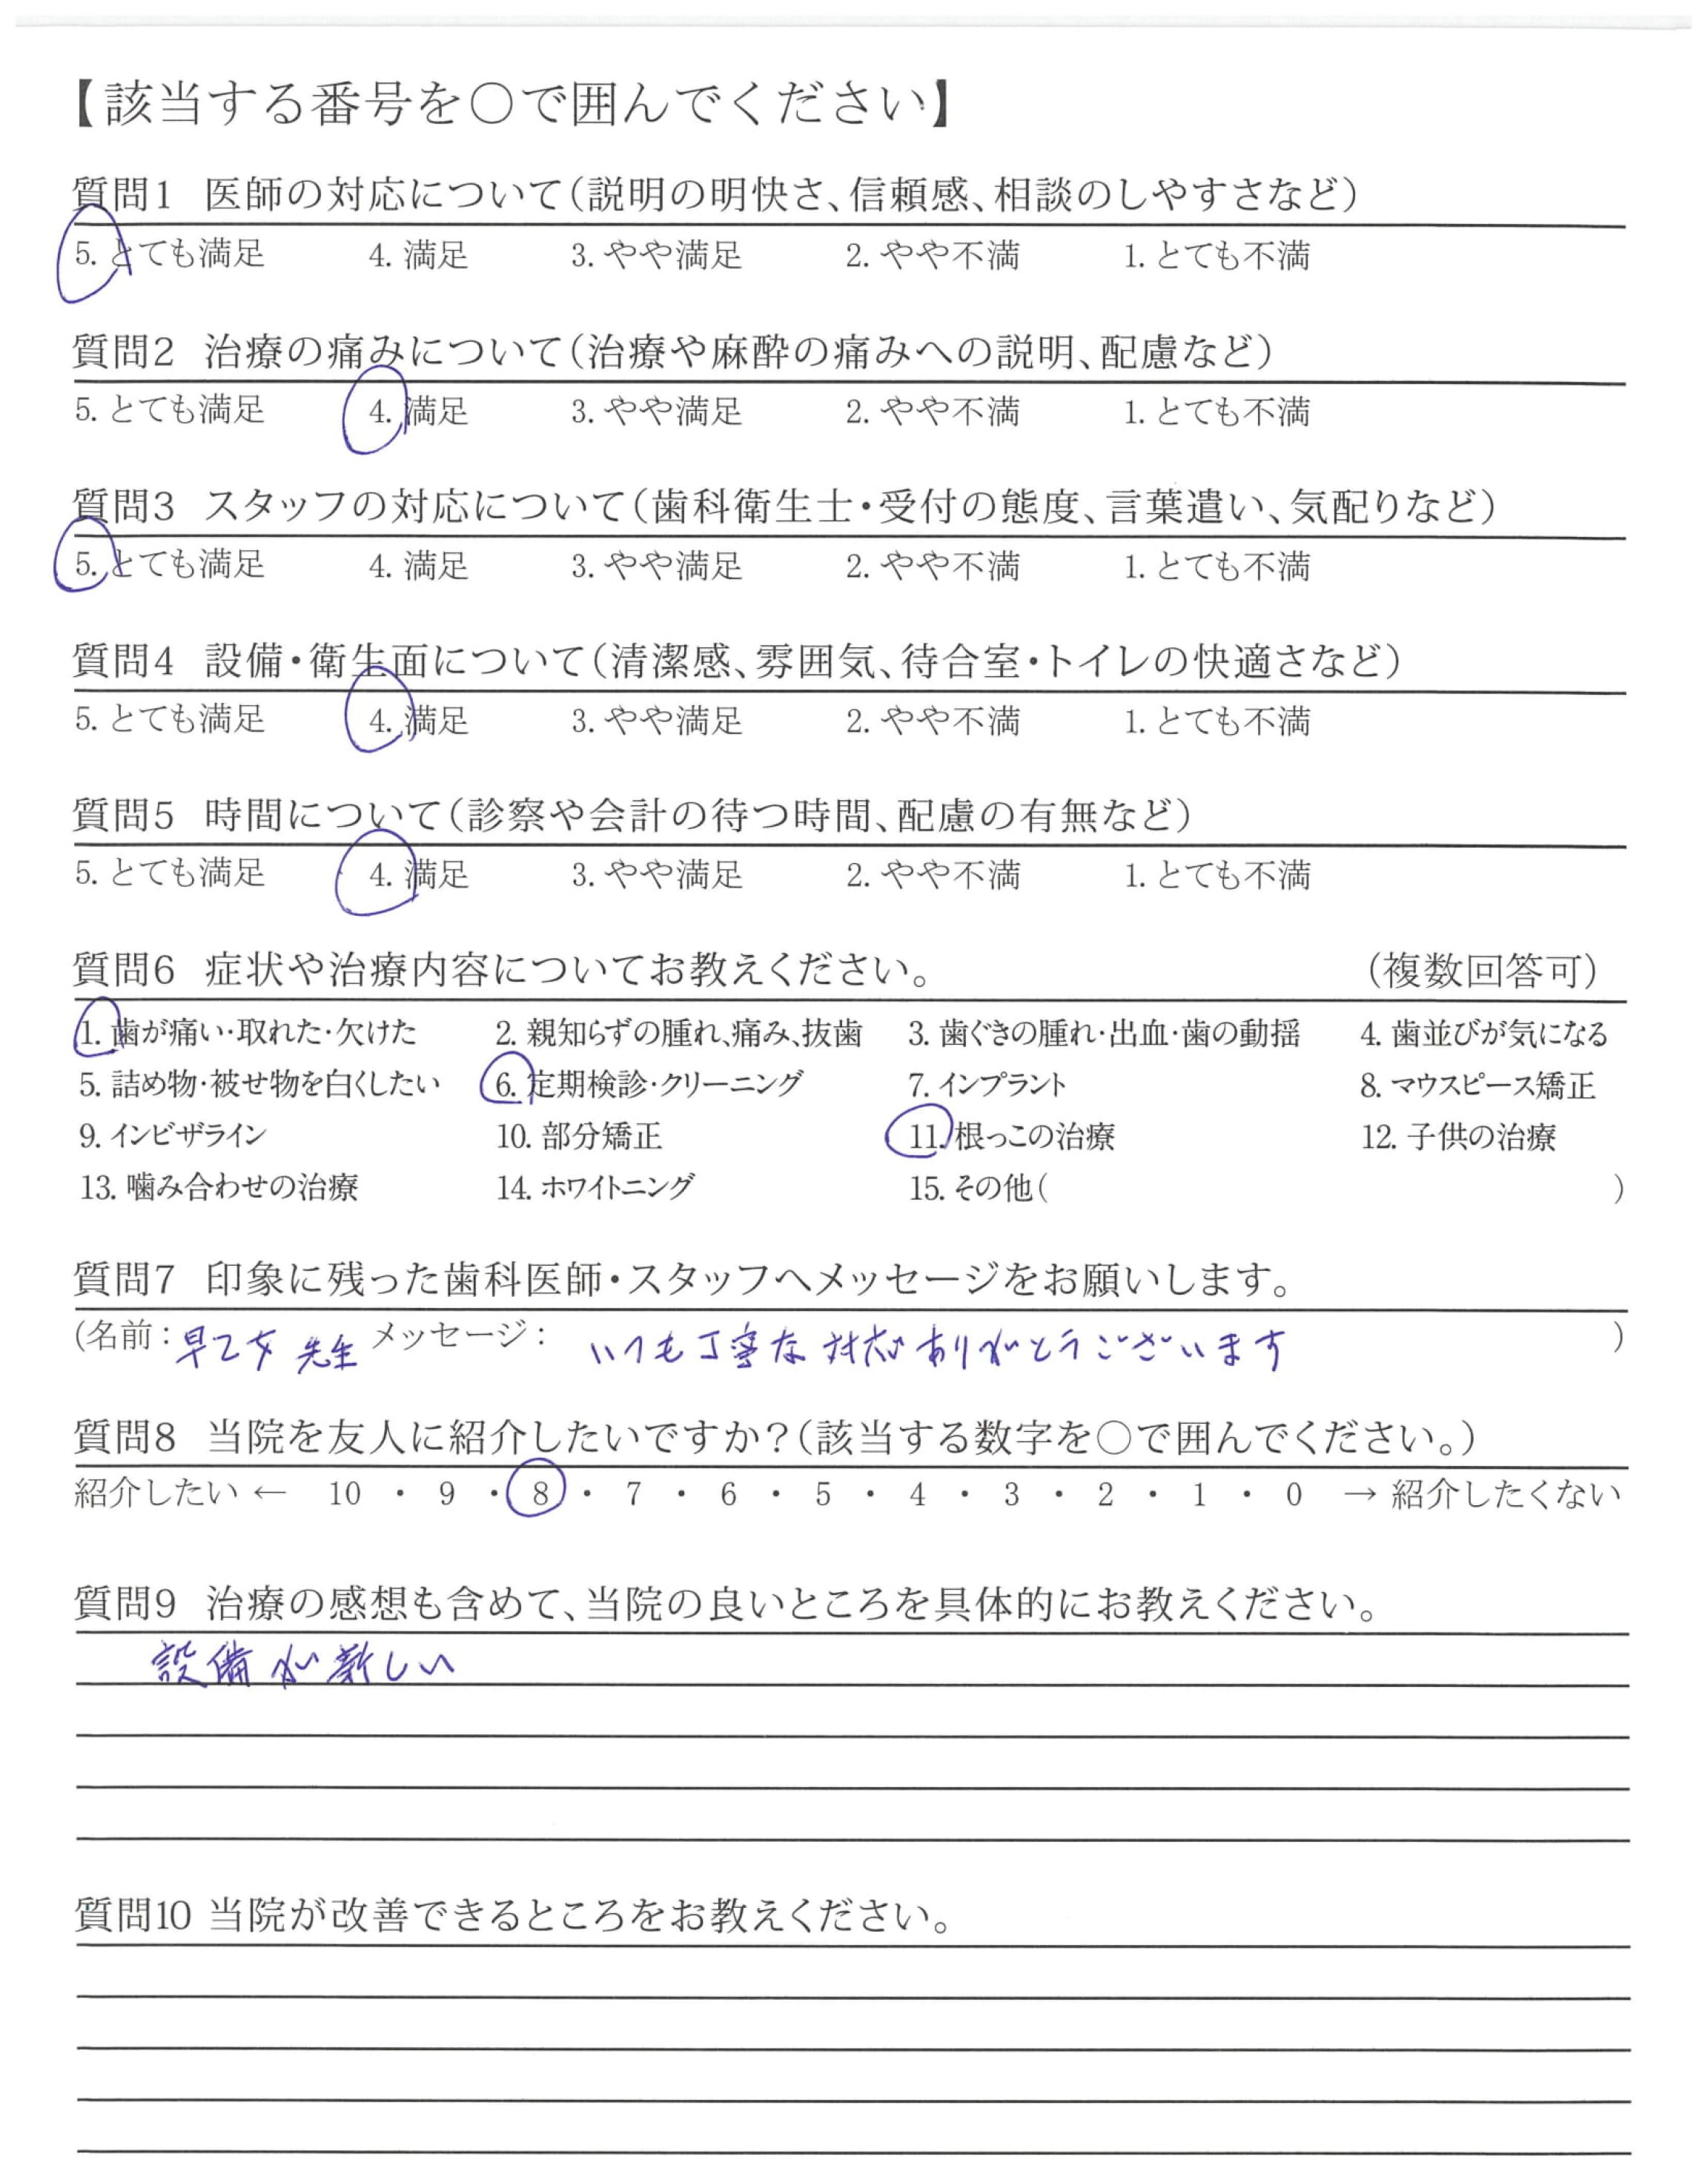 【該当する番号を○で囲んでください】
質問1 医師の対応について(説明の明快さ、信頼感、相談のしやすさなど)
5. とても満足 4. 満足 3. やや満足 2. やや不満 1. とても不満
質問2 治療の痛みについて(治療や麻酔の痛みへの説明、配慮など)
5. とても満足 4. 満足 3. やや満足 2. やや不満 1. とても不満
質問3 スタッフの対応について(歯科衛生士・受付の態度、言葉遣い、気配りなど)
5. とても満足 4. 満足 3. やや満足 2. やや不満 1. とても不満
質問4 設備・衛生面について(清潔感、雰囲気、待合室・トイレの快適さなど)
5. とても満足 4. 満足 3. やや満足 2. やや不満 1. とても不満
質問5 時間について(診察や会計の待つ時間、配慮の有無など)
5. とても満足 4. 満足 3. やや満足 2. やや不満 1. とても不満
質問6 症状や治療内容についてお教えください。 (複数回答可)
1. 歯が痛い・取れた・欠けた 2. 親知らずの腫れ、痛み、抜歯 3. 歯ぐきの腫れ・出血・歯の動揺 4. 歯並びが気になる
5. 詰め物・被せ物を白くしたい 6. 定期検診・クリーニング 7. インプラント 8. マウスピース矯正
9. インビザライン 10. 部分矯正 11. 根っこの治療 12. 子供の治療
13. 噛み合わせの治療 14. ホワイトニング 15. その他( )
質問7 印象に残った歯科医師・スタッフへメッセージをお願いします。
(名前:早乙女 先生 メッセージ: いつも丁寧な対応ありがとうございます )
質問8 当院を友人に紹介したいですか?(該当する数字を○で囲んでください。)
紹介したい ← 10 ・ 9 ・ 8 ・ 7 ・ 6 ・ 5 ・ 4 ・ 3 ・ 2 ・ 1 ・ 0 → 紹介したくない
質問9 治療の感想も含めて、当院の良いところを具体的にお教えください。
設備が新しい
質問10 当院が改善できるところをお教えください。